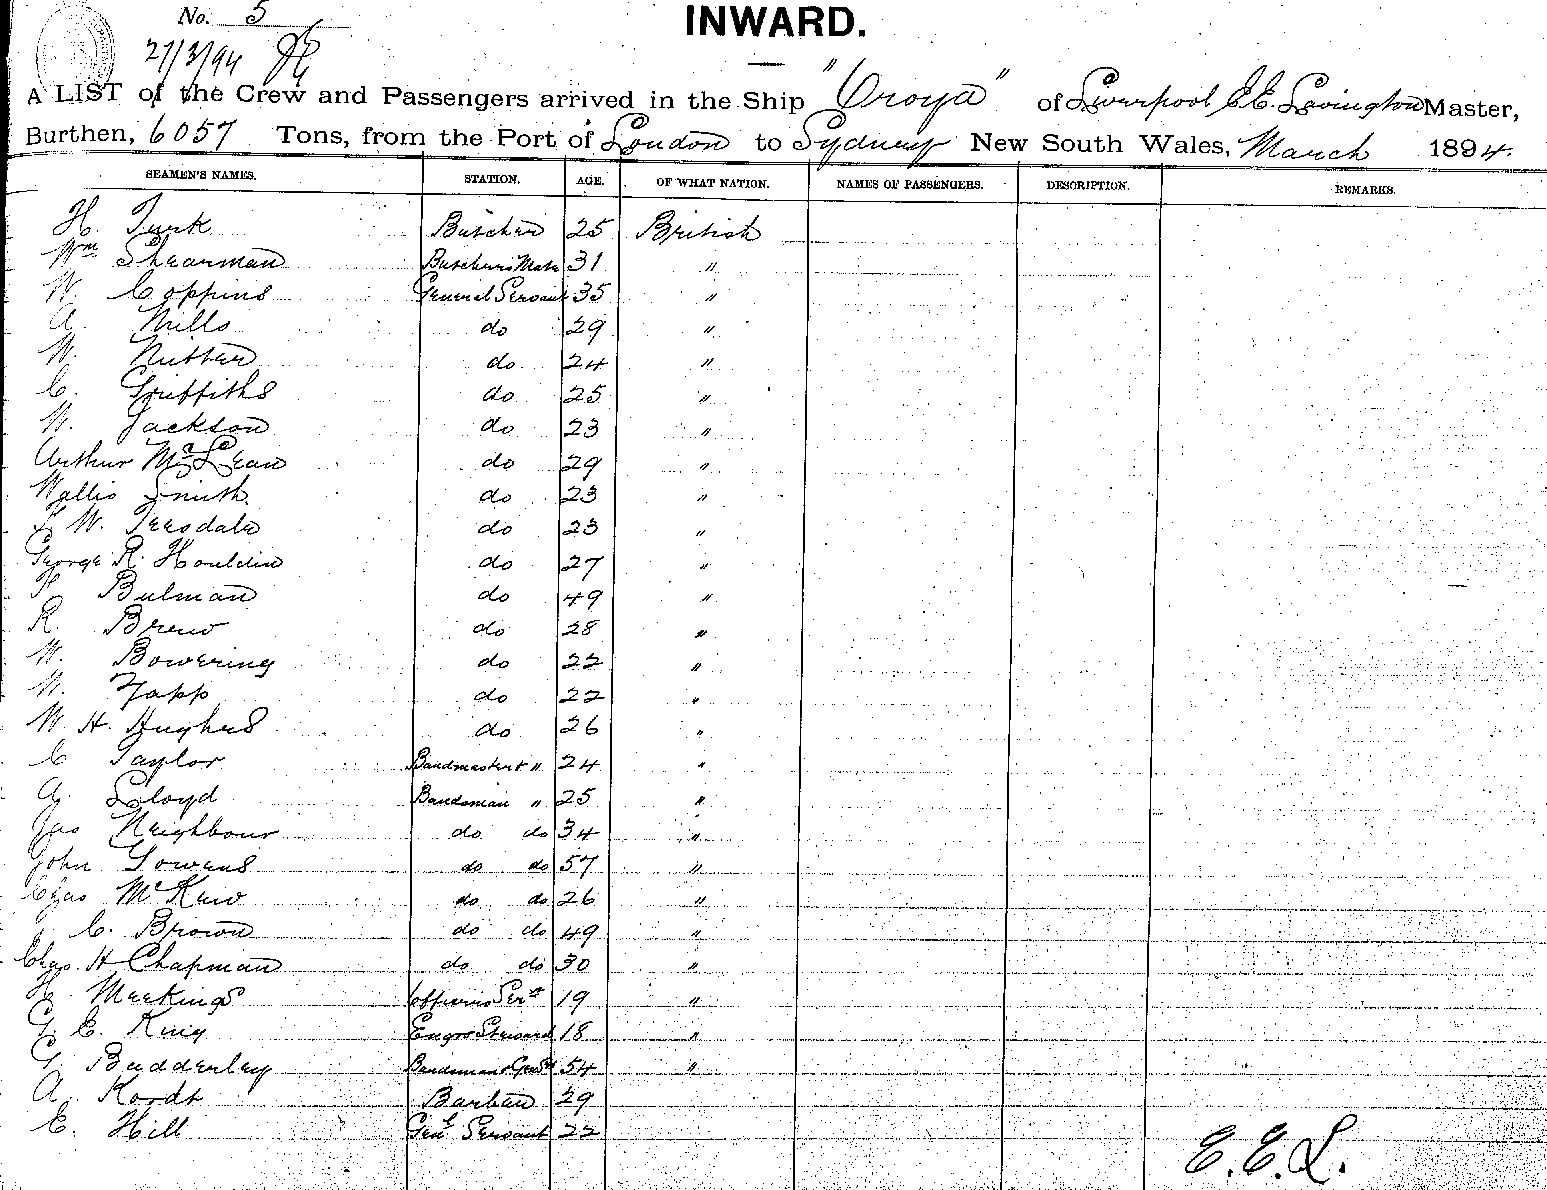 No. 5
27/3/94
INWARD.
A LIST of the Crew and Passengers arrived in the Ship "Oroya" of Liverpool E.E. Lavington Master,
Burthen, 6057 Tons, from the Port of London to Sydney New South Wales, March 1894.
SEAMEN'S NAMES. STATION. AGE. OF WHAT NATION. NAMES OF PASSENGERS. DESCRIPTION. REMARKS.
H. Turk Butcher 25 British
Wm Shearman Butchers Mate 31 "
W. Coppins General Servant 35 "
A. Mills do 29 "
W. Nutter do 24 "
C. Griffiths do 25 "
W. Jackson do 23 "
Arthur McLean do 29 "
Wallis Smith do 23 "
W. Teesdale do 23 "
George R. Houldin do 27 "
Bulman do 49 "
R. Brew do 28 "
W. Bowering do 22 "
W. Tapp do 22 "
W. H. Hughes do 26 "
C Taylor Bandmaster + " 24 "
Lloyd Bandsman " 25 "
Jas Neighbour do do 34 "
John Gowens do do 57 "
Chas McKew do do 26 "
C. Brown do do 49 "
Chas. H Chapman do do 30 "
H. Meekings Officers Sert 19 "
G. E. King Engrs Steward 18 "
G. Badderley Bandsman + Gen St 54 "
A. Kordt Barber 29
E. Hill Genl Servant 22
E.E.L.